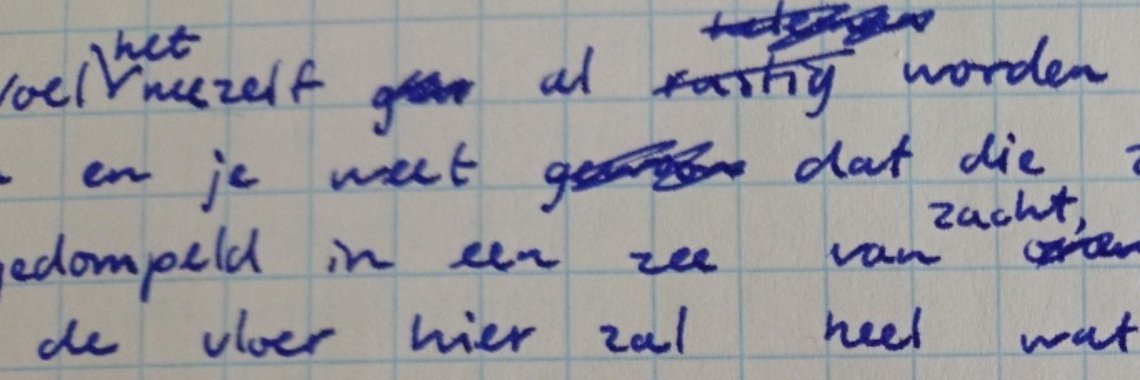 voel het mezelf al rustig worden
en je weet dat die
zacht,
gedompeld in een zee van
de vloer hier zal heel wat